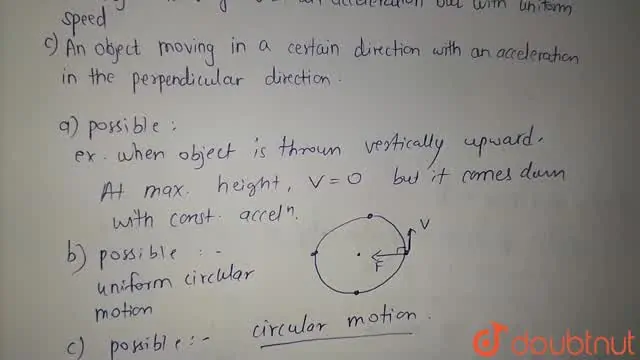 acceleration but with uniform
speed
c) An object moving in a certain direction with an acceleration
in the perpendicular direction.
a) possible :
ex. when object is thrown vertically upward.
At max. height, V=0 but it comes down
with const. accelⁿ.
b) possible :-
uniform circular
motion
V
F
c) possible :- circular motion.
doubtnut